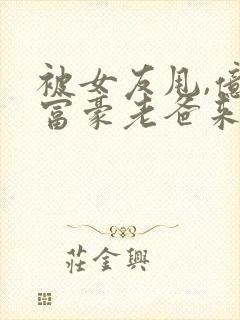 被女友甩,億
富豪老爸来
莊金興